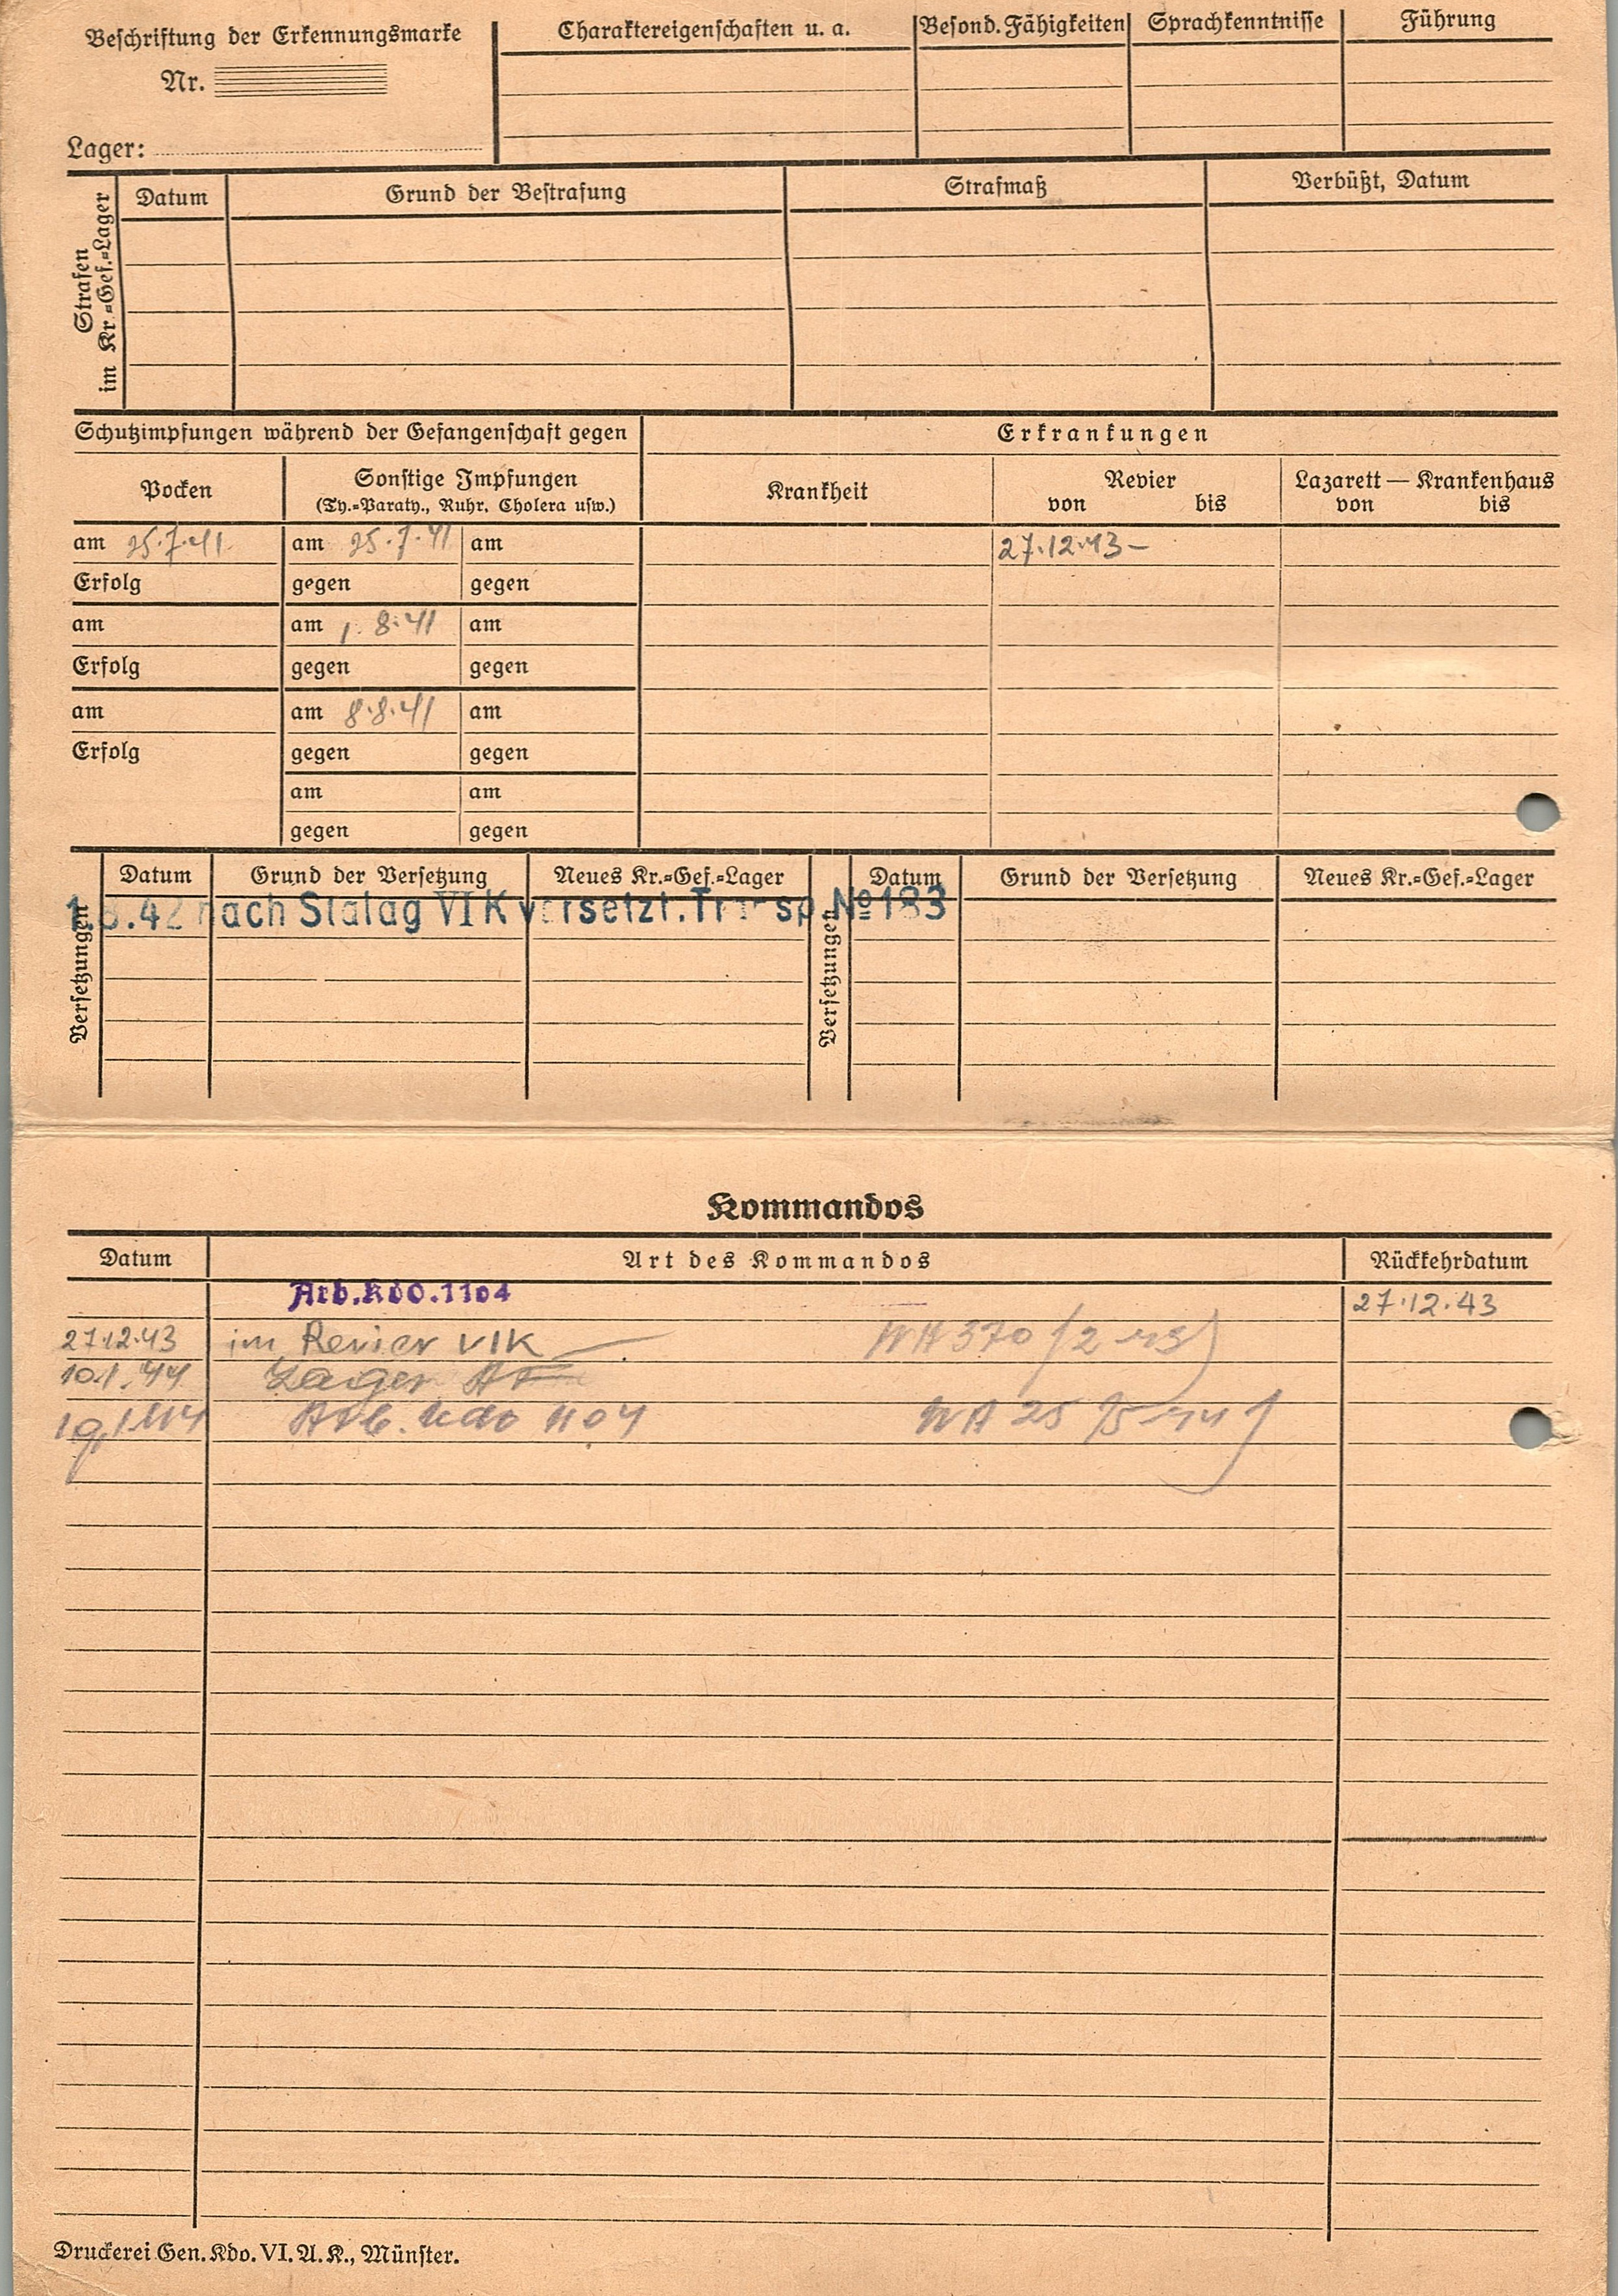 Beschriftung der Erkennungsmarke
Nr.
Lager:
Charaktereigenschaften u. a. Besond. Fähigkeiten Sprachkenntnisse Führung
Strafen im Kr.=Gef.=Lager
Datum Grund der Bestrafung Strafmaß Verbüßt, Datum
Schutzimpfungen während der Gefangenschaft gegen Erkrankungen
Pocken Sonstige Impfungen Krankheit Revier Lazarett — Krankenhaus
(Ty.=Paraty., Ruhr, Cholera usw.) von bis von bis
am 25.7.41 am 25.7.41 am 27.12.43 –
Erfolg gegen gegen
am am 1.8.41 am
Erfolg gegen gegen
am am 8.8.41 am
Erfolg gegen gegen
am am
gegen gegen
Versetzungen Datum Grund der Versetzung Neues Kr.=Gef.=Lager Versetzungen Datum Grund der Versetzung Neues Kr.=Gef.=Lager
nach Stalag VI K versetzt. Transp. No 183
Kommandos
Datum Art des Kommandos Rückkehrdatum
Arb.Kdo.1104 27.12.43
27.12.43 im Revier VIK
10.1.44 Lager
Arb. Kdo 1104
Druckerei Gen. Kdo. VI. A. K., Münster.